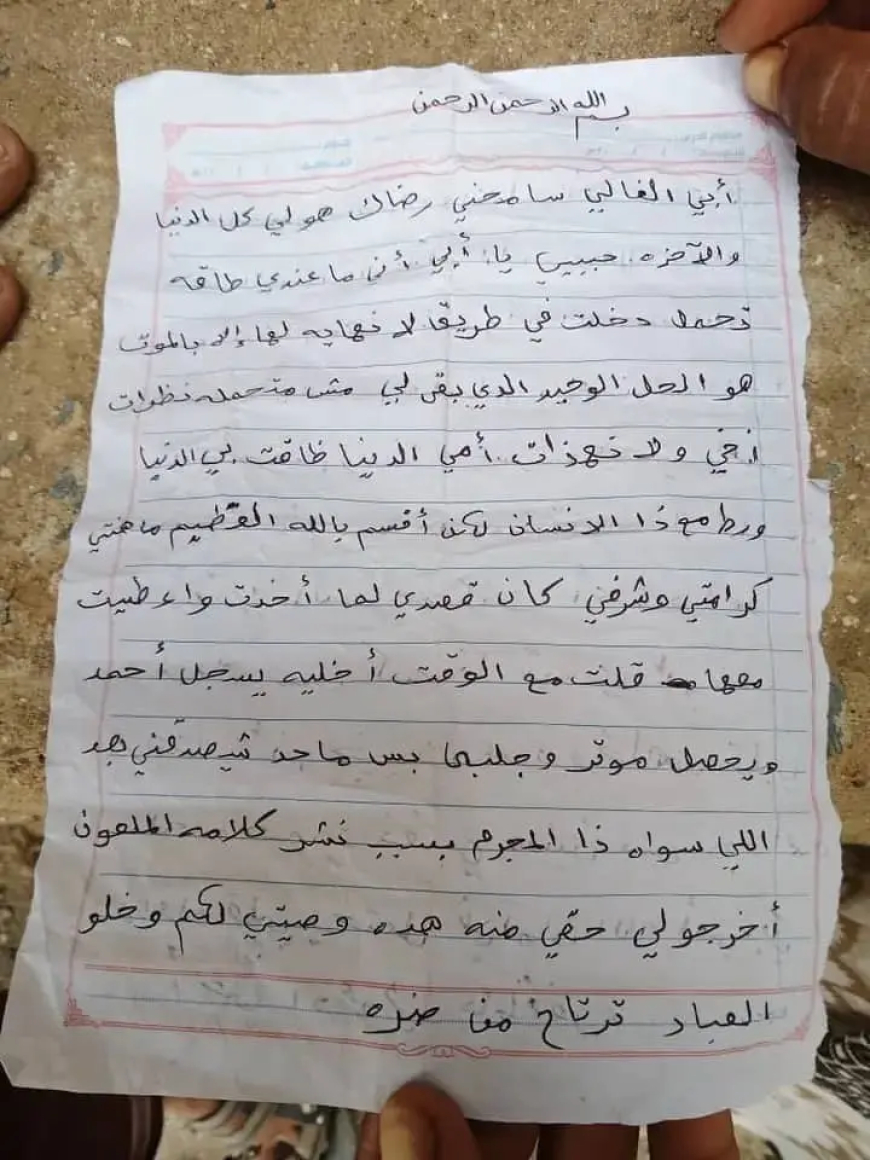 بسم الله الرحمن الرحمن
أبي الغالي سامحني رضاك هو لي كل الدنيا
والآخره حبيبي يا أبي أني ما عندي طاقه
تحمل دخلت في طريق لا نهايه لها إلا بالموت
هو الحل الوحيد الدي بقى لي مش متحمله نظرات
أخي ولا نهذات أمي الدينا ظاقت بي الدنيا
ورط مع ذا الانسان لكن أقسم بالله العظيم ماهنتي
كرامتي وشرفي كان قصدي لما أخدت واعطيت
معها قلت مع الوقت أخليه يسجل أحمد
ويحصل موتر وجلبها بس ماحد شيصدقني بعد
اللي سواه ذا المجرم بسبب نشر كلامه الملعون
أخرجولي حقي منه هده وصيتي لكم وخلو
العباد ترتاح من ضره